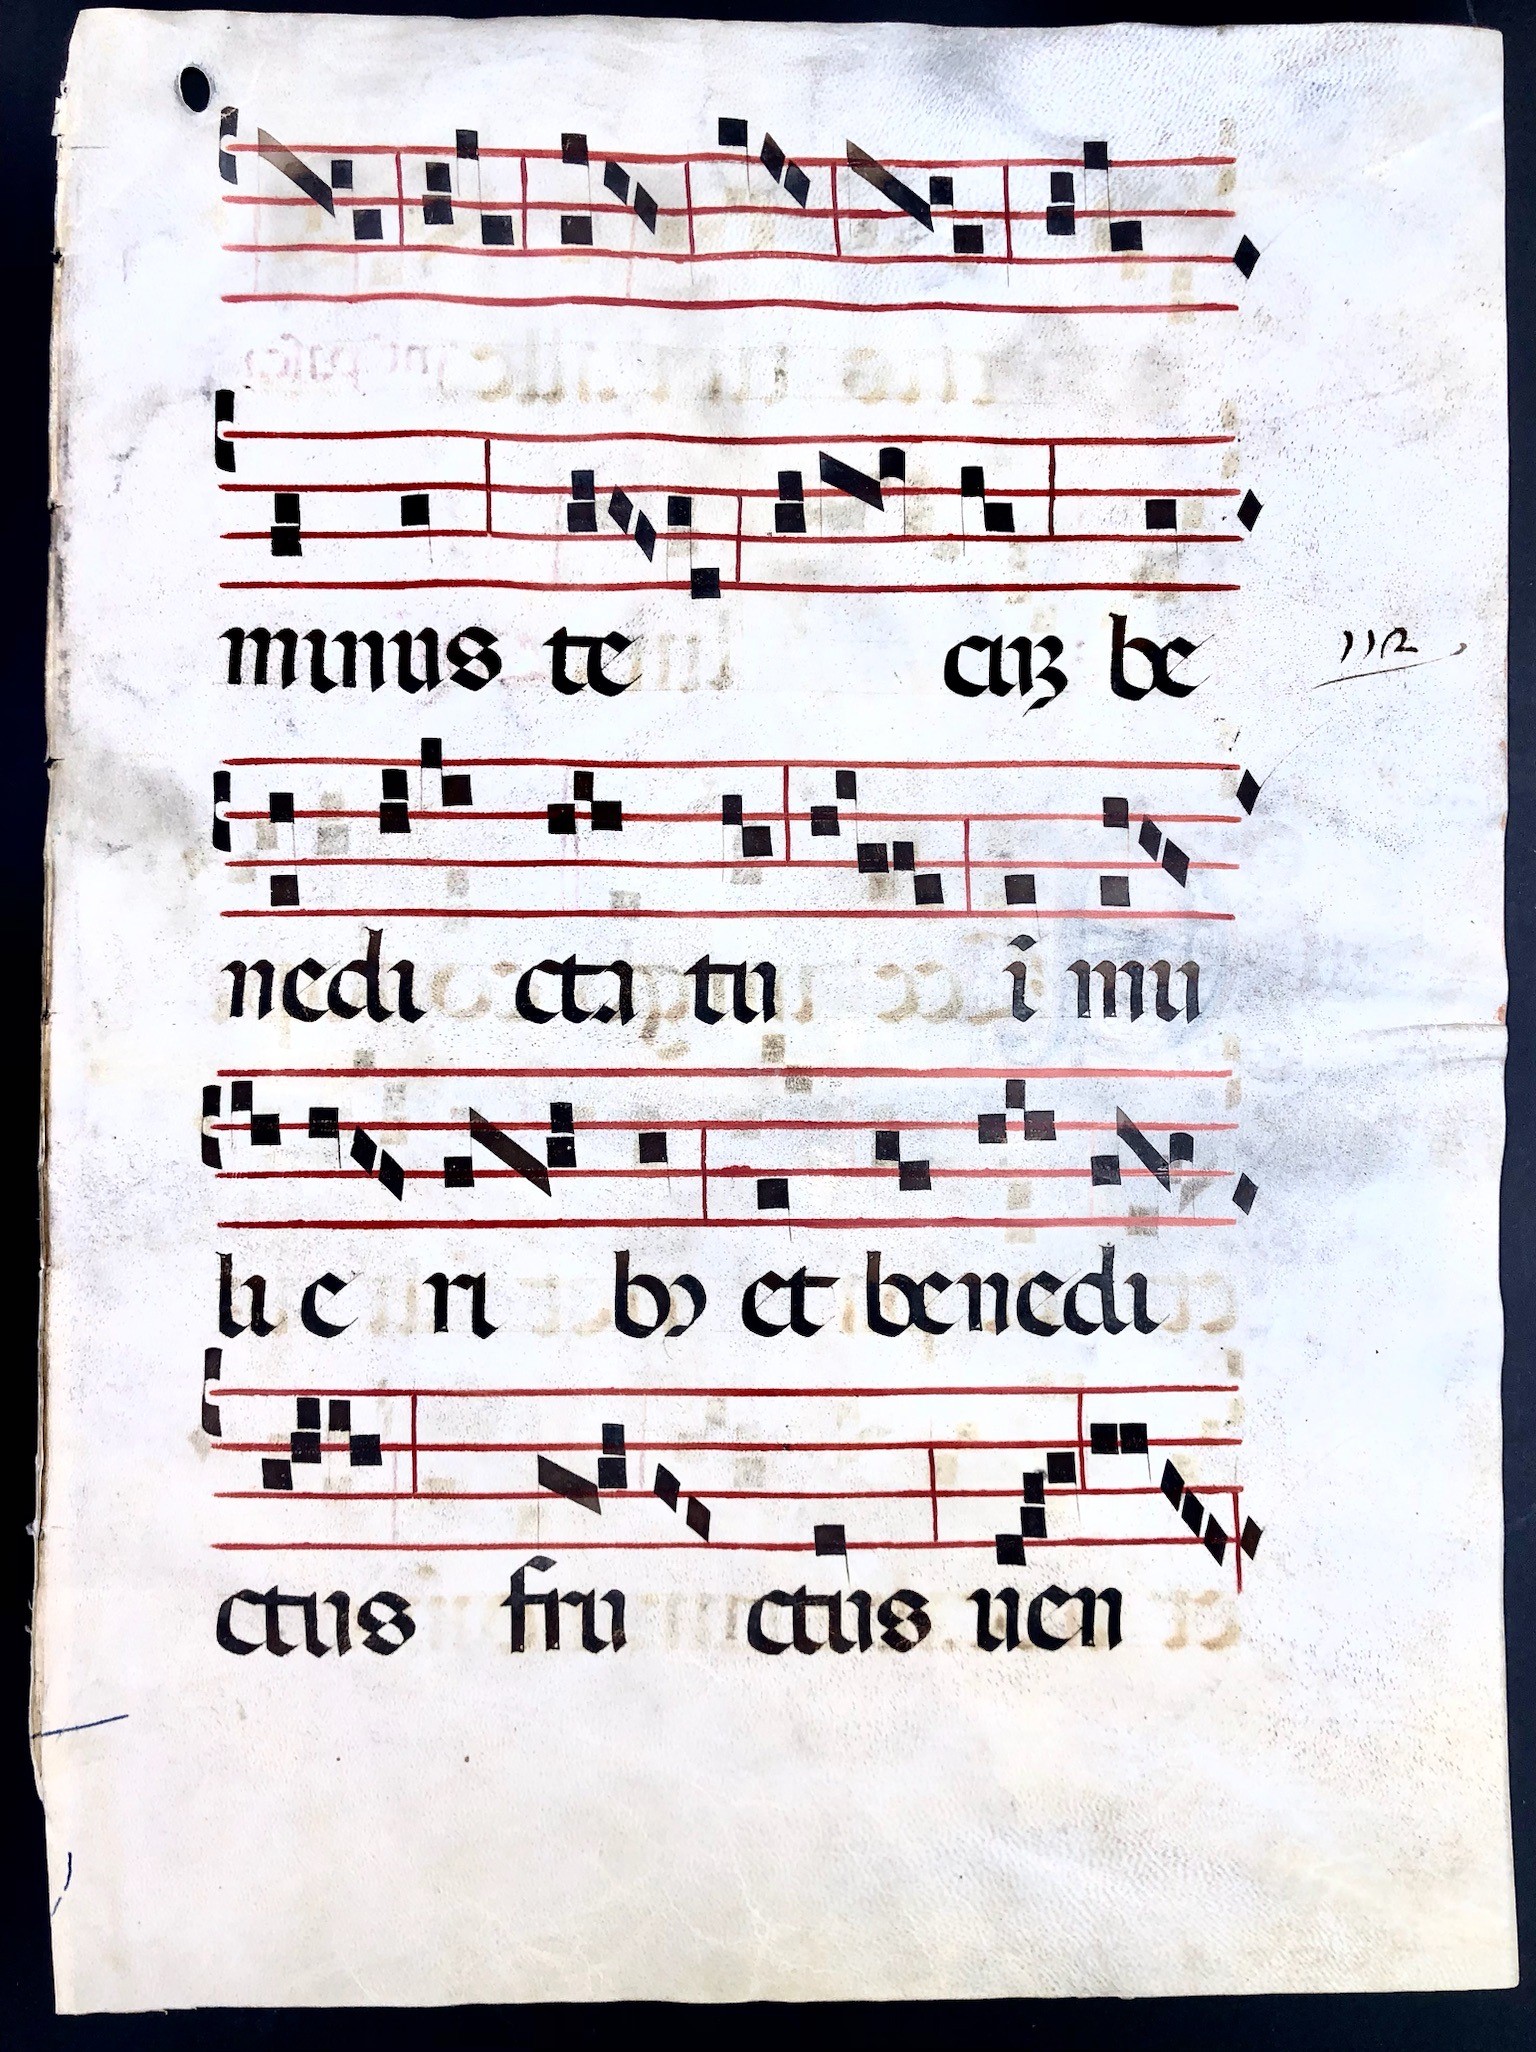 minus te cuʒ be
112
nedi cta tu i mu
li e ri bꝯ et benedi
ctus fru ctus uen